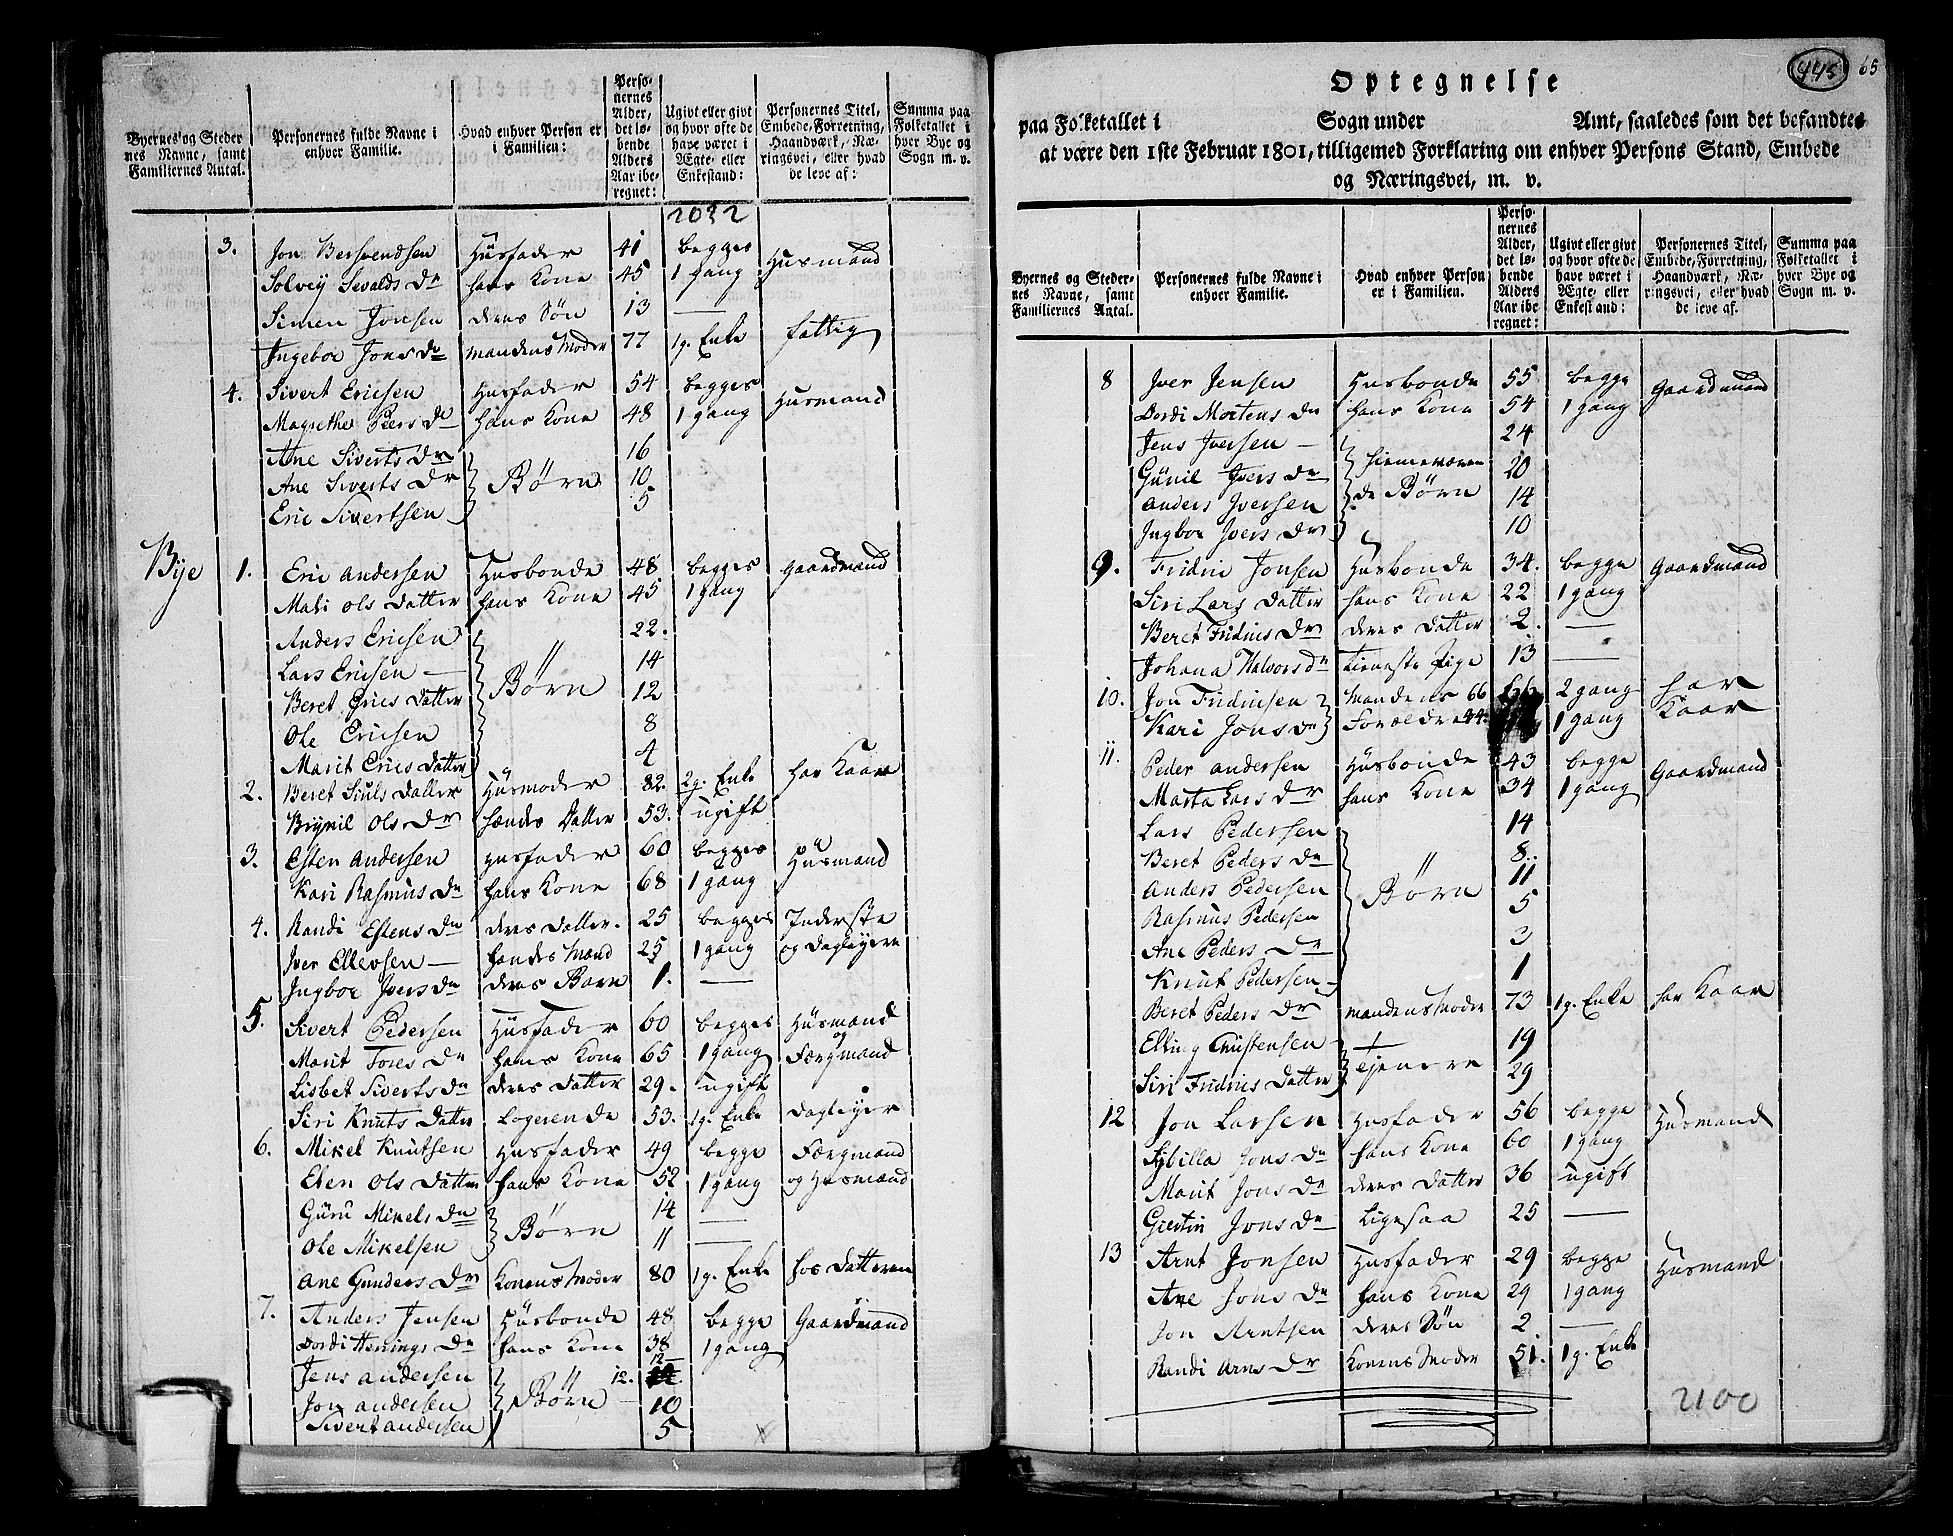 Byernes og Steder
nes Navne, samt
Familiernes Antal.
Personernes fulde Navne i
enhver Familie.
Hvad enhver Person er
i Familien:
Perso-
nernes
Alder,
det lø-
bende
Alders
Aar ibe-
regnet:
Ugivt eller givt
og hvor ofte de
have været i
Ægte- eller
Enkestand:
Personernes Titel,
Embede, Forretning,
Haandværk, Næ-
ringsvei, eller hvad
de leve af:
Summa paa
Folketallet i
hver Bye og
Sogn m. v.
2032
3. Jon Bersvendsen Husfader 41 begges
Solvey Sivalds Dr hans Kone 45 1 gang Husmand
Simen Jonsen deres Søn 13 —
Ingebor Jons Dr mandens Moder 77 1 g. Enke fattig
4. Sivert Ericsen Husfader 54 begges
Magrethe Peers Dr hans Kone 48 1 gang Husmand
Ane Siverts Dr 16
Ane Siverts Dr Børn 10
Eric Sivertsen 5
Bye 1. Eric Andersen Husbonde 48 begges Gaardmand
Mali Ols Datter hans Kone 45 1 gang
Anders Ericsen 22.
Lars Ericsen — 14
Beret Erics Datter Børn 12
Ole Ericsen 8
Marit Erics Datter 4
2. Beret Siuls Datter Husmoder 82. 2 g. Enke har Kaar
Brynil Ols Dr hendes Datter 53. ugift
3. Esten Andersen Husfader 60 begges Husmand
Kari Rasmus Dr hans Kone 68 1 gang
4. Randi Estens Dr deres Datter. 25 begges Inderste
Iver Ellevsen — hendes Mand 25 1 gang og Dagleyere
Ingbor Ivers Dr deres Barn 1. —
5. Sivert Pedersen Husfader 60 begges Husmand
Marit Tores Dr hans Kone 65 1 gang og Færgmand
Lisbet Siverts Dr deres Datter 29. ugift
Siri Knuts Datter Logerende 53. 1 g. Enke Dagleyer
6. Mikel Knutsen Husfader 49 begge Færgmand
Elen Ols Datter hans Kone 52 1 gang og Husmand
Guru Mikels Dr 14 —
Ole Mikelsen Børn 11 —
Ane Gunders Dr Konens Moder 80 1 g. Enke hos Datteren
7. Anders Jensen Husbonde 48 begge Gaardmand
Dordi Hennings Dr hans Kone 38 1 gang
Jens Andersen 12. 12
Jon Andersen Børn 10
Sivert Andersen 5
445 65
Optegnelse
paa Folketallet i Sogn under Amt, saaledes som det befandtes
at være den 1ste Februar 1801, tilligemed Forklaring om enhver Persons Stand, Embede
og Næringsvei, m. v.
Byernes og Steder-
nes Navne, samt
Familiernes Antal.
Personernes fulde Navne i
enhver Familie.
Hvad enhver Person
er i Familien.
Perso-
nernes
Alder,
det lø-
bende
Alders
Aar ibe-
regnet:
Ugivt eller givt
og hvor ofte de
have været i
Ægte- eller
Enkestand:
Personernes Titel,
Embede, Forretning,
Haandværk, Næ-
ringsvei, eller hvad
de leve af.
Summa paa
Folketallet i
hver Bye og
Sogn m. v.
8 Iver Jensen Husbonde 55 begge Gaardmand
Dordi Mortens Dr hans Kone 54 1 gang
Jens Iversen — 24
Gunil Ivers Dr hiemeværen 20
Anders Iversen de Børn 14
Ingbor Ivers Dr 10
9. Fridric Jonsen Husbonde 34. begge Gaardmand
Siri Lars Datter hans Kone 22 1 gang
Beret Fridrics Dr deres Datter 2. —
Johana Halvors Dr tieneste Pige 13 —
10. Jon Fridricsen Mandens 66 2 gang har
Kari Jons Dr Forældre 1 gang Kaar
11. Peder Andersen Husbonde 43 begge Gaardmand
Marta Lars Dr hans Kone 34 1 gang
Lars Pedersen 14
Beret Peders Dr 8.
Anders Pedersen Børn 11
Rasmus Pedersen 5
Ane Peders Dr 3
Knut Pedersen 1
Beret Peders Dr mandens Moder 73 1 g. Enke har Kaar
Elling Christensen 19
Siri Fridrics Datter Tjenere 29
12 Jon Larsen Husfader 56 begge Husmand
Sybilla Jons Dr hans Kone 60 1 gang
Marit Jons Dr deres Datter 36 ugift
Giertin Jons Dr Ligesaa 25 —
13 Arnt Jonsen Husfader 29 begge Husmand
Ane Jons Dr hans Kone 29 1 gang
Jon Arntsen deres Søn 2 —
Randi Arns Dr Konens Moder 51. 1 g. Enke
2100